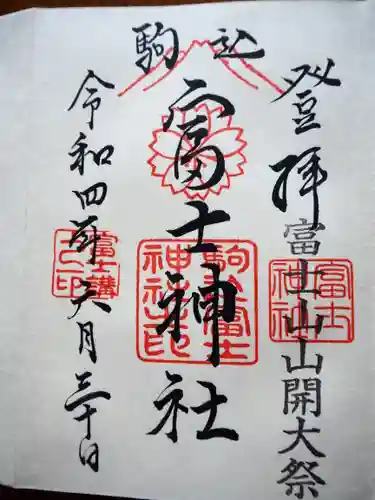 駒込
登拝
富士山山開大祭
富士神社
令和四年六月三十日
駒込富士神社之印
富士講之印